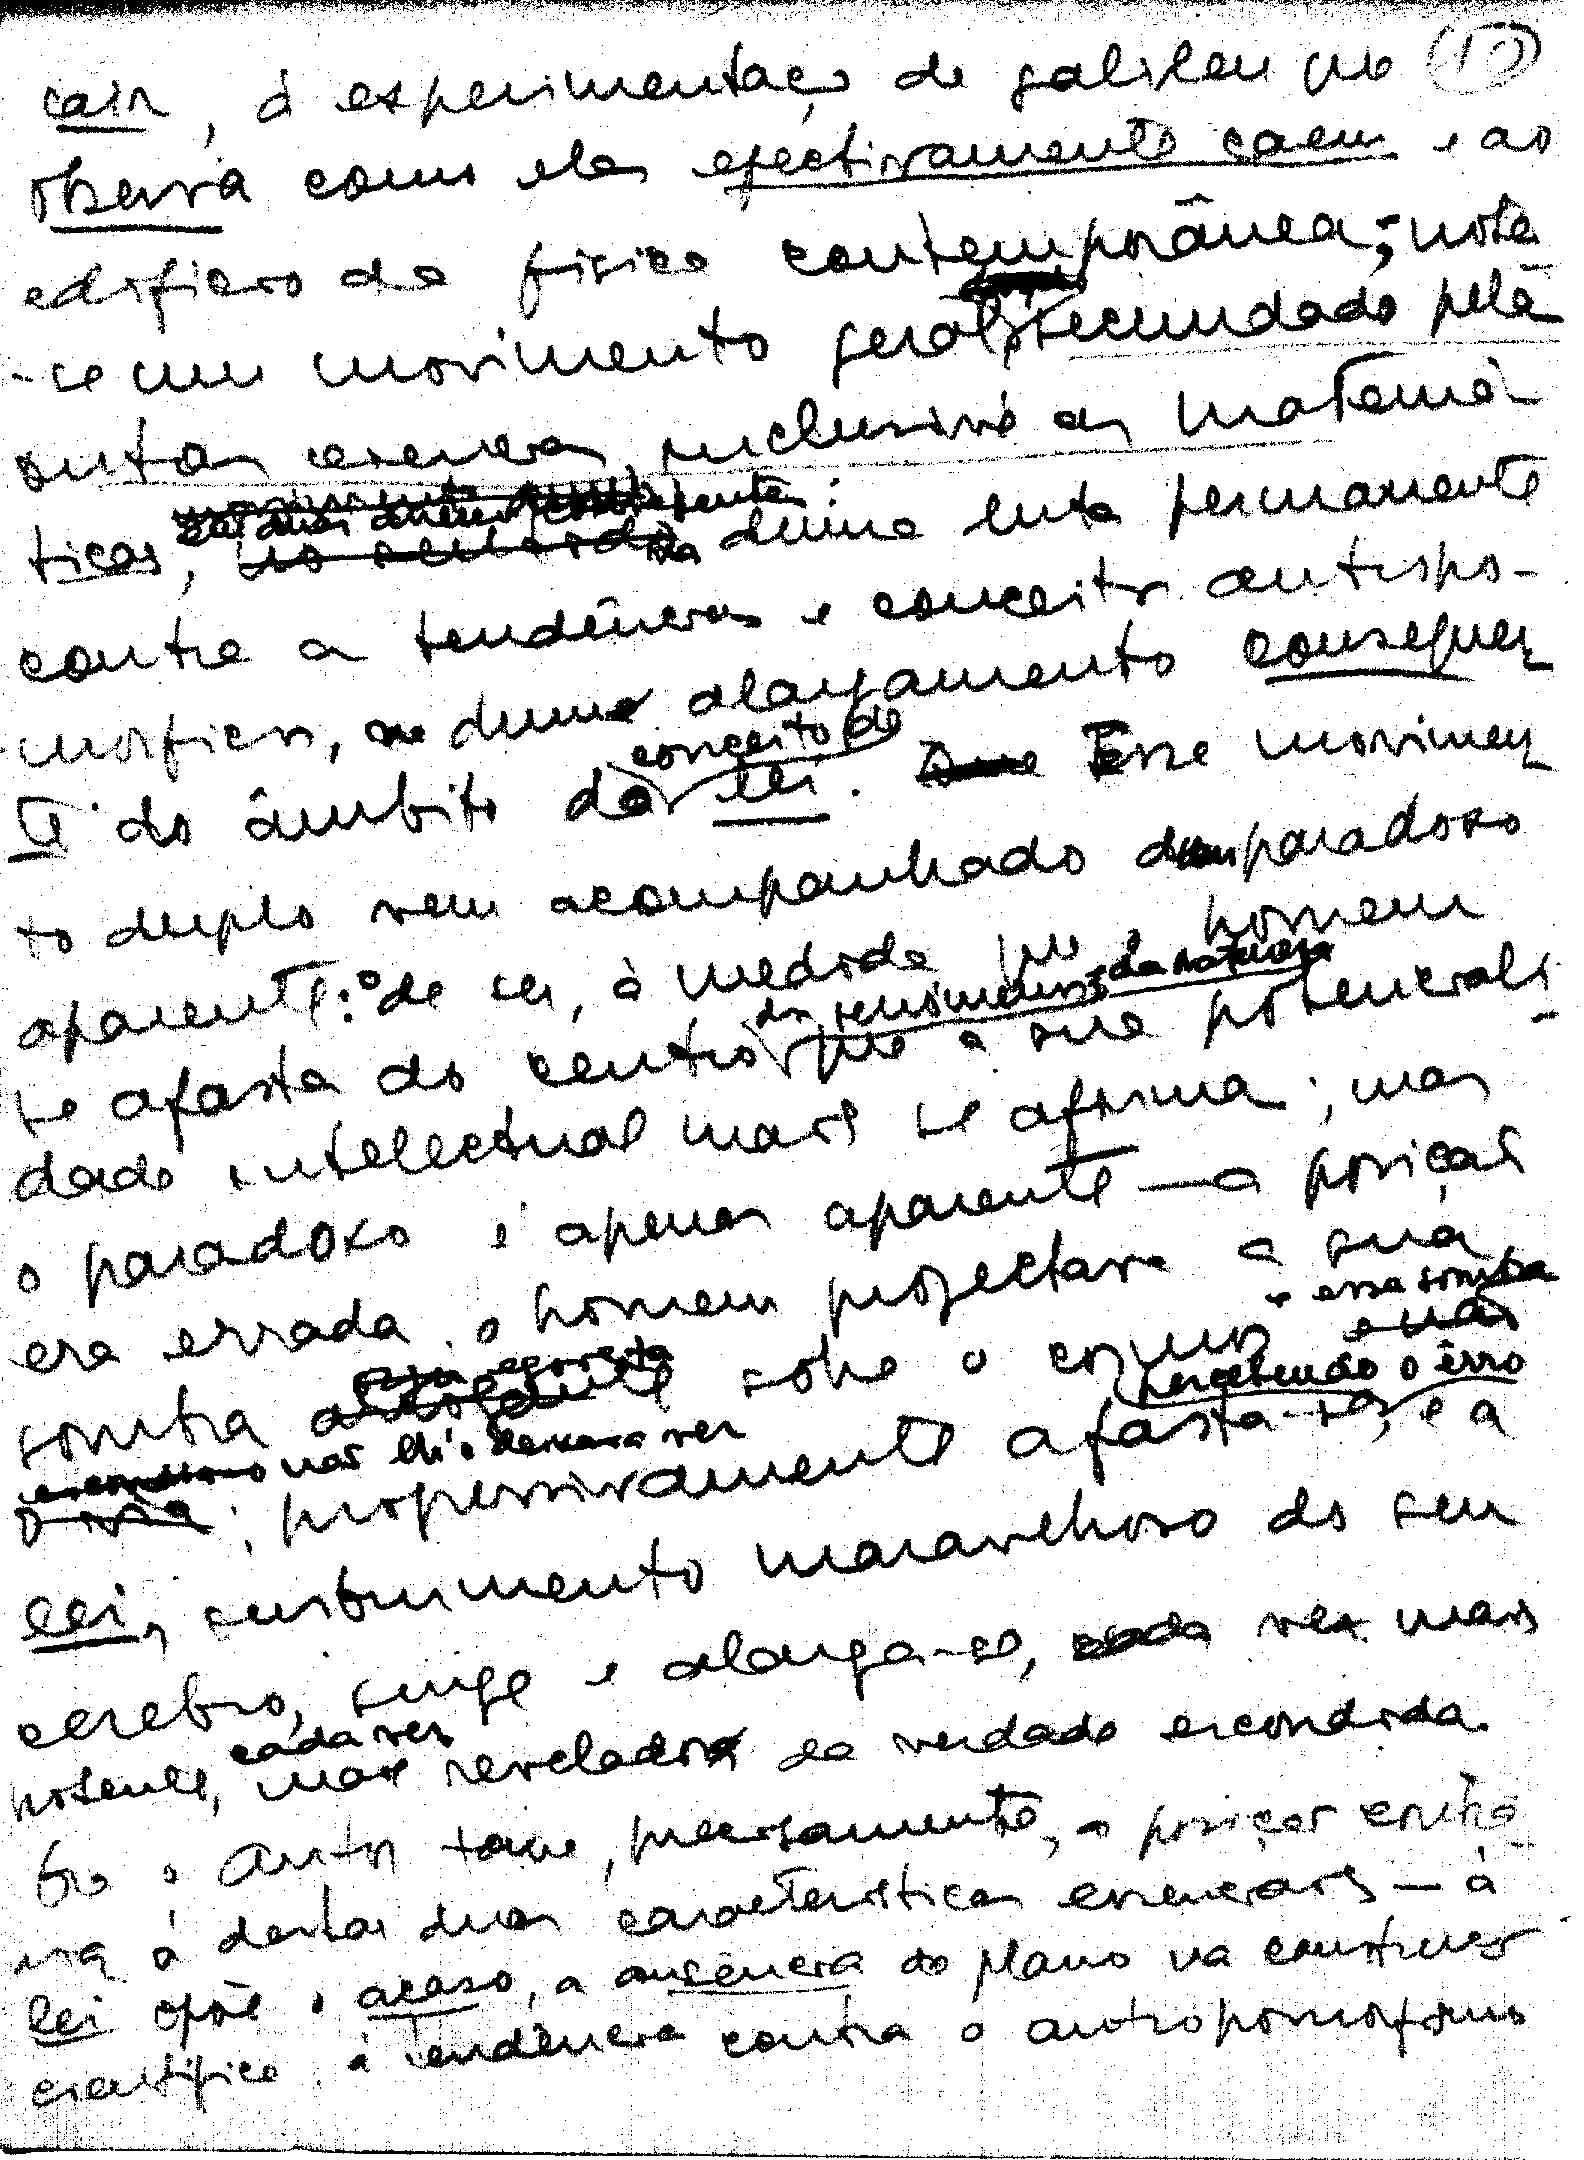 cair, à experimentação de Galileu que (10)
observa como eles efectivamente caem e ao
edifício da física contemporânea; nota
-se um movimento geral, secundado pelas
outras ciencias, inclusivé as matemá
ticas, em duas direcções: da duma luta permanente
contra as tendências e conceitos antropo-
mórficos, e dum alargamento consequen
te do âmbito do conceito de lei. Esse movimen
to duplo vem acompanhado dum paradoxo
aparente: o de ser, à medida que o homem
se afasta do centro dos fenómenos da natureza que a sua potenciali
dade intelectual mais se afirma; mas
o paradoxo é apenas aparente — a posição
era errada, o homem projectava a sua
sombra sobre o cosmos e essa sombra
não lhe deixava ver
; progressivamente afasta-se, percebendo o êrro, e a
lei, instrumento maravilhoso do seu
cerebro, surge e alarga-se, cada vez mais
potente, cada vez mais reveladora da verdade escondida.
Ora o Autor toma, precisamente, a posição contrá
ria à destas duas características essenciais — à
lei opõe o acaso, a ausência do plano na construção
científica, à tendência contra o antropomorfismo